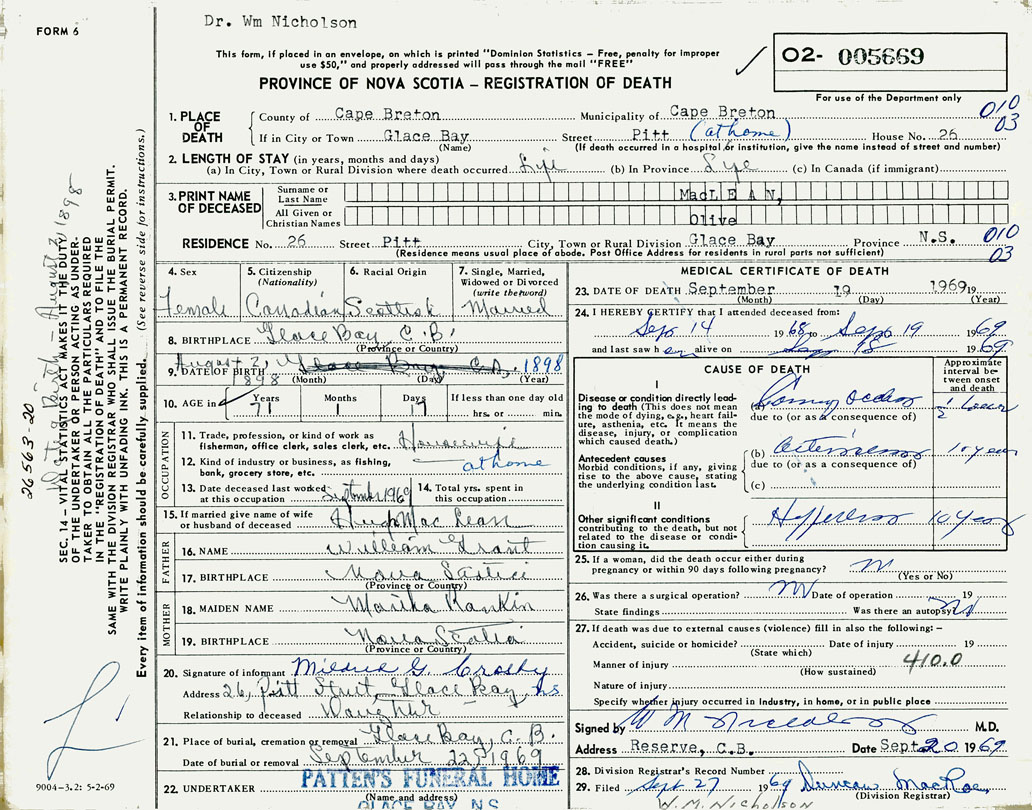 Dr. Wm Nicholson
FORM 6
This form, if placed in an envelope, on which is printed "Dominion Statistics – Free, penalty for improper
use $50," and properly addressed will pass through the mail "FREE"
PROVINCE OF NOVA SCOTIA – REGISTRATION OF DEATH
02- 005669
For use of the Department only
010
03
1. PLACE OF DEATH
County of Cape Breton Municipality of Cape Breton
If in City or Town Glace Bay Street Pitt (at home) House No. 26
(Name) (If death occurred in a hospital or institution, give the name instead of street and number)
2. LENGTH OF STAY (in years, months and days)
(a) In City, Town or Rural Division where death occurred Life (b) In Province Life (c) In Canada (if immigrant)
3. PRINT NAME OF DECEASED
Surname or Last Name MacLEAN,
All Given or Christian Names Olive
RESIDENCE No. 26 Street Pitt City, Town or Rural Division Glace Bay Province N.S. 010
(Residence means usual place of abode. Post Office Address for residents in rural parts not sufficient) 03
4. Sex Female
5. Citizenship (Nationality) Canadian
6. Racial Origin Scottish
7. Single, Married, Widowed or Divorced (write the word) Married
8. BIRTHPLACE Glace Bay C.B.
(Province or Country)
9. DATE OF BIRTH August 2, 1898 1898
(Month) (Day) (Year)
10. AGE in Years 71 Months 1 Days 17 If less than one day old
hrs. or min.
OCCUPATION
11. Trade, profession, or kind of work as
fisherman, office clerk, sales clerk, etc. Housewife
12. Kind of industry or business, as fishing,
bank, grocery store, etc. at home
13. Date deceased last worked
at this occupation September 1969
14. Total yrs. spent in
this occupation
15. If married give name of wife
or husband of deceased Hugh MacLean
FATHER
16. NAME William Grant
17. BIRTHPLACE Nova Scotia
(Province or Country)
MOTHER
18. MAIDEN NAME Martha Rankin
19. BIRTHPLACE Nova Scotia
(Province or Country)
20. Signature of informant Mildred G. Crosby
Address 26, Pitt Street, Glace Bay NS
Relationship to deceased Daughter
21. Place of burial, cremation or removal Glace Bay, C.B.
Date of burial or removal September 22, 1969
22. UNDERTAKER PATTEN'S FUNERAL HOME
(Name and address)
GLACE BAY, N.S.
MEDICAL CERTIFICATE OF DEATH
23. DATE OF DEATH September 19 1969 19
(Month) (Day) (Year)
24. I HEREBY CERTIFY that I attended deceased from:
Sept 14 1968 to Sept 19 1969
and last saw her alive on Sept 18 1969
CAUSE OF DEATH
Approximate interval between onset and death
I
Disease or condition directly leading to death (This does not mean the mode of dying, e.g., heart failure, asthenia, etc. It means the disease, injury, or complication which caused death.)
(a)
due to (or as a consequence of)
Antecedent causes
Morbid conditions, if any, giving rise to the above cause, stating the underlying condition last.
(b) 10 year
due to (or as a consequence of)
(c)
II
Other significant conditions contributing to the death, but not related to the disease or condition causing it.
10 years
25. If a woman, did the death occur either during
pregnancy or within 90 days following pregnancy?
(Yes or No)
26. Was there a surgical operation? Date of operation 19
State findings Was there an autopsy?
27. If death was due to external causes (violence) fill in also the following: –
Accident, suicide or homicide? Date of injury 19
(State which)
Manner of injury 410.0
(How sustained)
Nature of injury
Specify whether injury occurred in Industry, in home, or in public place
Signed by W M Nicholson M.D.
Address Reserve, C.B. Date Sept. 20 1969
28. Division Registrar's Record Number
29. Filed Sept 27 1969 Duncan MacRae
(Division Registrar)
W.M. Nicholson
SEC. 14 – VITAL STATISTICS ACT MAKES IT THE DUTY
OF THE UNDERTAKER OR PERSON ACTING AS UNDERTAKER
TO OBTAIN ALL THE PARTICULARS REQUIRED
IN THE "REGISTRATION OF DEATH" AND TO FILE THE
SAME WITH THE DIVISION REGISTRAR WHO SHALL ISSUE THE BURIAL PERMIT.
WRITE PLAINLY WITH UNFADING INK. THIS IS A PERMANENT RECORD.
Every item of information should be carefully supplied. (See reverse side for instructions.)
26563-20
Date of Birth – August 2 1898
9004-3.2: 5-2-69